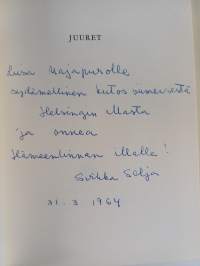 JUURET
Liisa Majapurolle
sydämellinen kiitos
Helsingin Masta
ja onnea
Hämeenlinnan Malle!
Sirkka Selja
31.3.1964